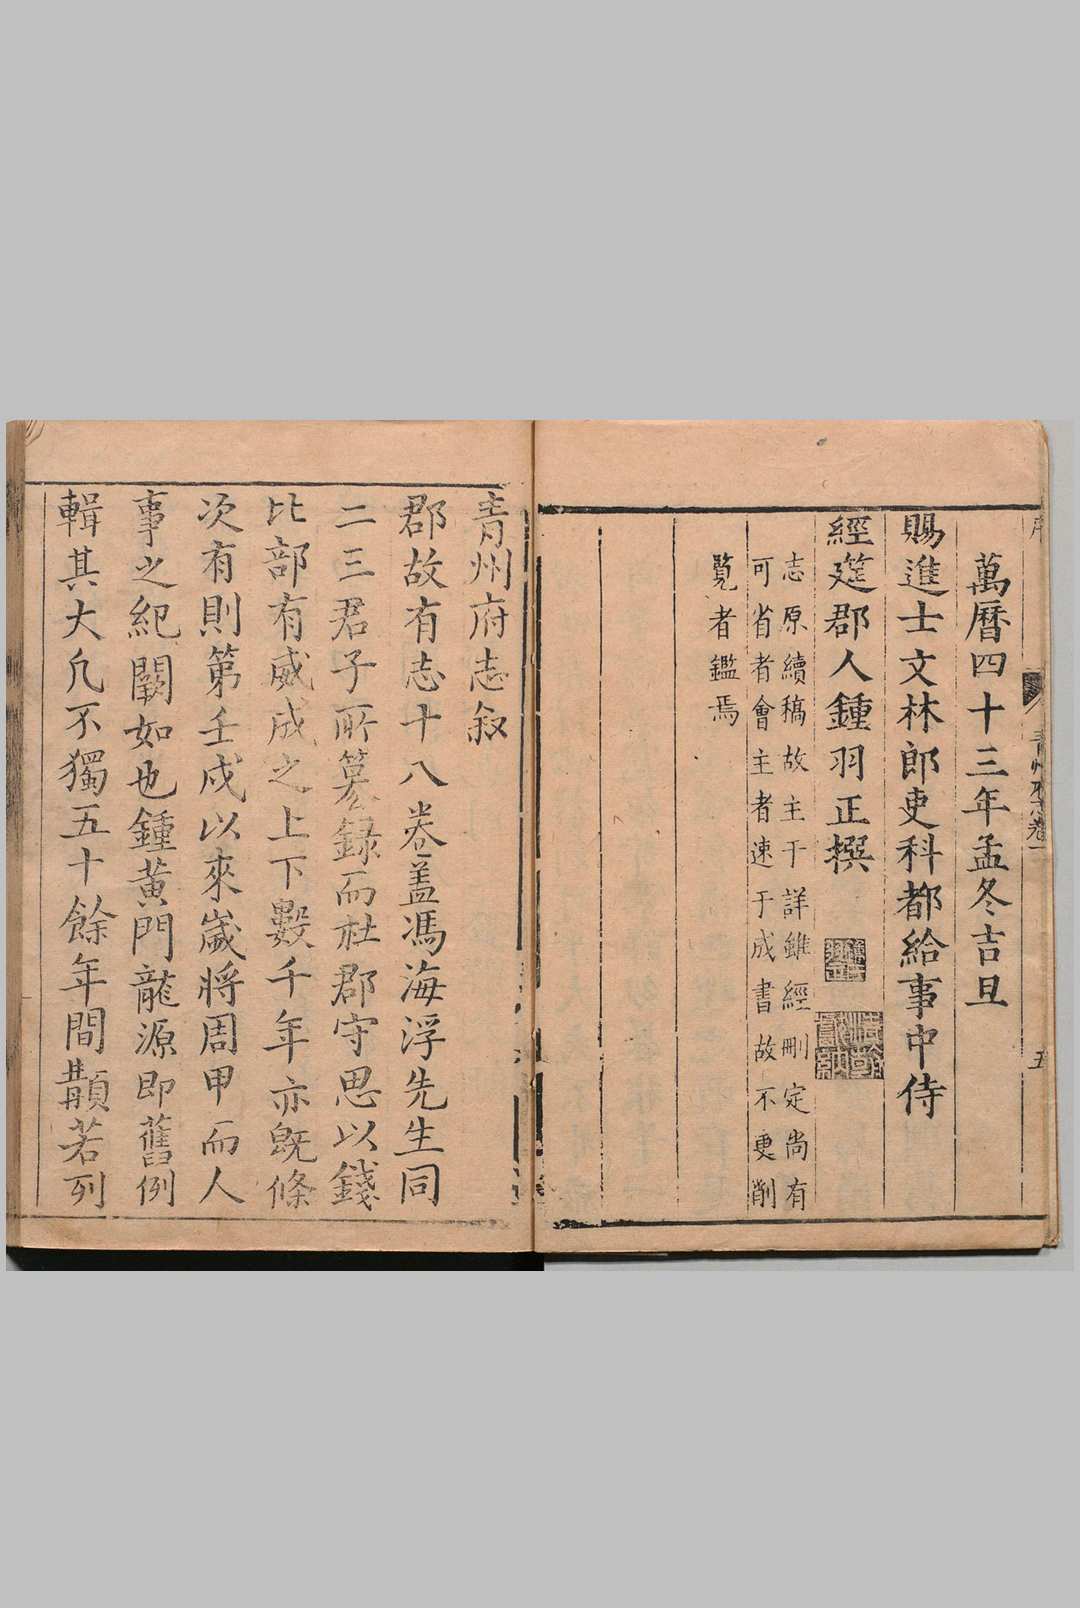 萬曆四十三年孟冬吉旦
賜進士文林郎吏科都給事中侍
經筵郡人鍾羽正撰
志原續稿故主于詳雖經刪定尚有
可省者會主者速于成書故不更削
覧者鑑焉
五
青州府志叙
郡故有志十八卷盖馮海浮先生同
二三君子所纂録而社郡守思以錢
比部有威成之上下數千年亦既條
次有則第壬戌以來嵗將周甲而人
事之紀闕如也鍾黃門龍源即舊例
輯其大凡不獨五十餘年間顜若列